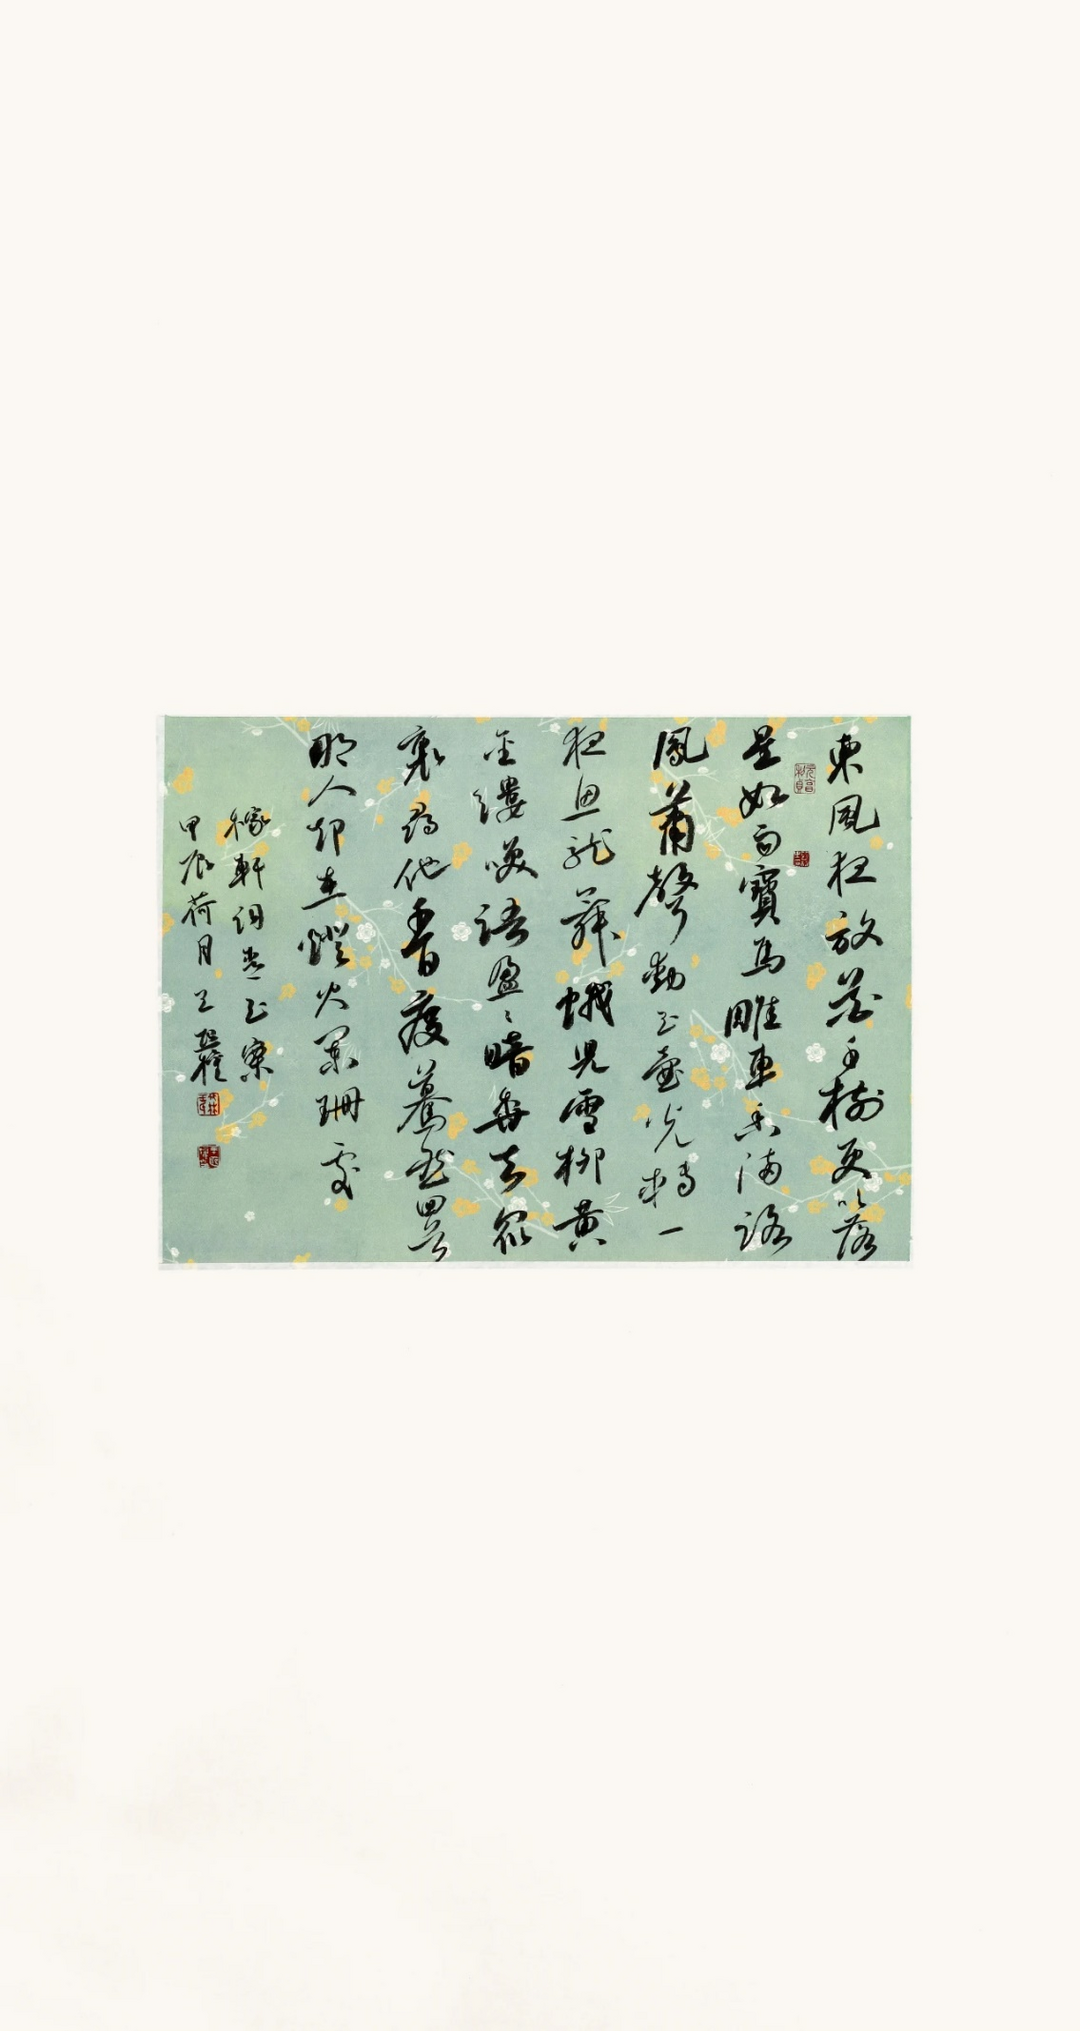 東風夜放花千樹更吹落
星如雨寶馬雕車香滿路
鳳簫聲動玉壺光轉一
夜魚龍舞蛾兒雪柳黃
金縷咲語盈〻暗香去眾
裏尋他千百度驀然回首
那人卻在燈火闌珊處
稼軒詞青玉案
甲辰荷月王